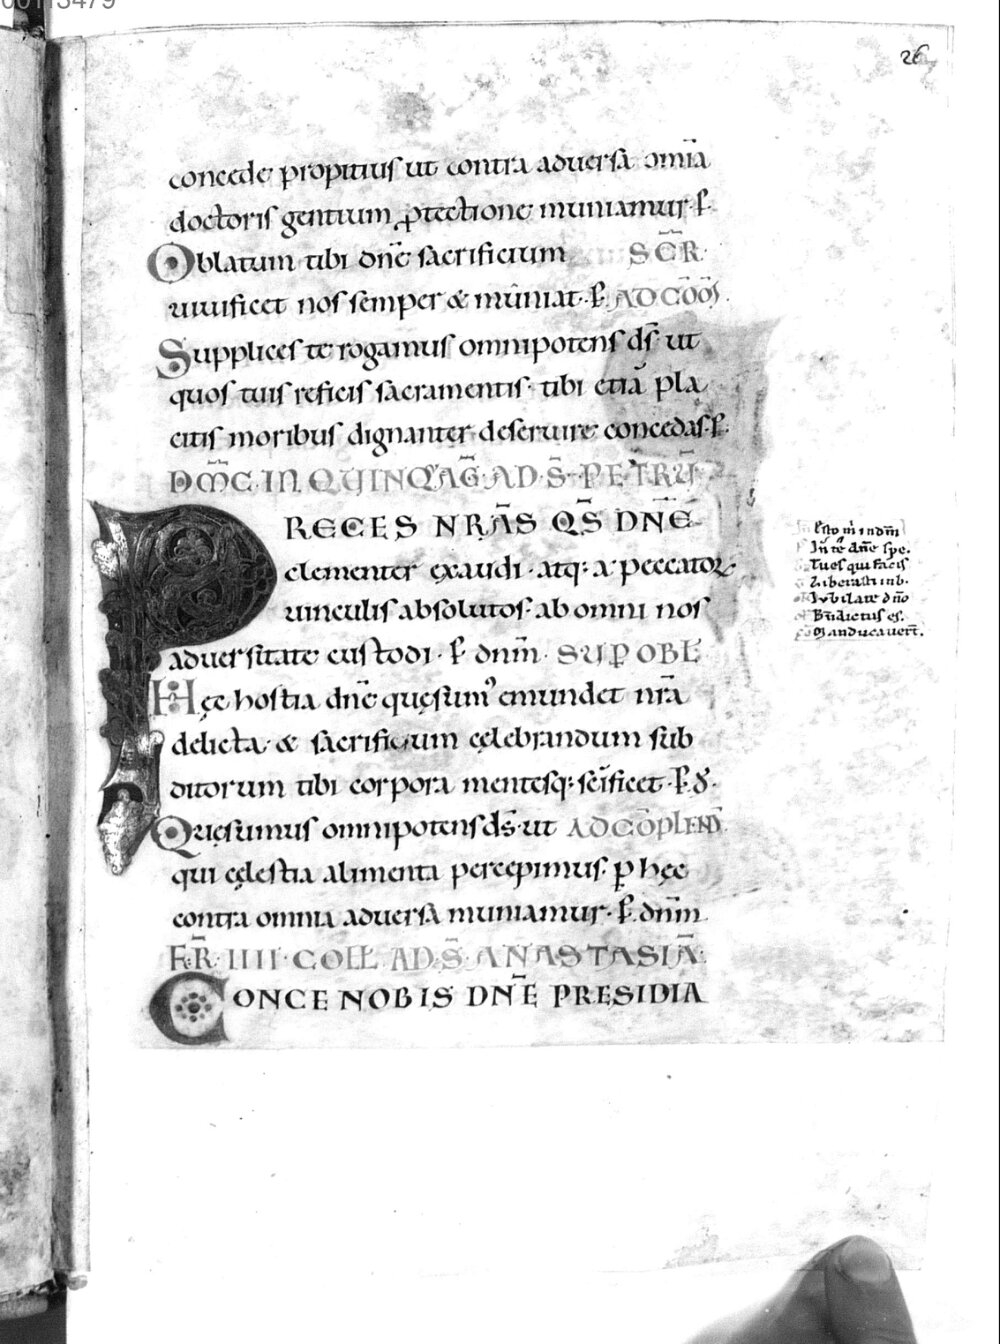 00113479
26
concede propitius ut contra aduersa om̄ia
doctoris gentium ꝓtectione muniamur· ꝑ.
Oblatum tibi dn̄e sacrificium SEC̄R·
uiuificet nos semper & mūniat· ꝑ. AD COO͞S.
Supplices te rogamus omnipotens ds̄ ut
quos tuis reficis sacramentis· tibi etiā pla
citis moribus dignanter deseruire concedas· ꝑ.
DOM̄C. IN QUINQ'AḠ· AD· S̄· PETRŪ
PRECES NR̄AS QS̄ DN̄E
clementer exaudi· atq: a peccatoꝝ
uinculis absolutos· ab omni nos
aduersitate custodi· ꝑ dn̄m· SUꝑ OBL̄
Hęc hostia dn̄e quęsum' emundet nr̄a
delicta· & sacrificium cęlebrandum sub
ditorum tibi corpora mentesq: sc̄ificet· ꝑ d·
Quęsumus omnipotens ds̄· ut AD CŌPLEND̄.
qui cęlestia alimenta percepimus· ꝑ hęc
contra omnia aduersa muniamur· ꝑ. dn̄m.
FR̄· IIII· COLL̄· AD· S̄· ANASTASIĀ·
CONCE NOBIS DN̄E PRESIDIA
Esto m̄ in dm̄
In te dn̄e spe.
Tu es qui facis
Liberasti in b.
Iubilate dn̄o
Bn̄dictus es.
Manducauer̄.